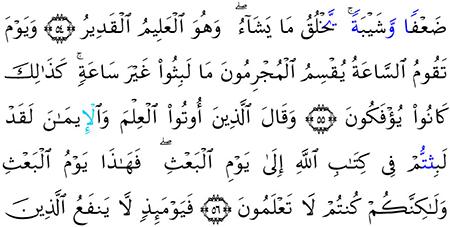 ضَعۡفٗا وَشَيۡبَةٗۚ يَخۡلُقُ مَا يَشَآءُۖ وَهُوَ ٱلۡعَلِيمُ ٱلۡقَدِيرُ ۝٥٤ وَيَوۡمَ
تَقُومُ ٱلسَّاعَةُ يُقۡسِمُ ٱلۡمُجۡرِمُونَ مَا لَبِثُواْ غَيۡرَ سَاعَةٖۚ كَذَٰلِكَ
كَانُواْ يُؤۡفَكُونَ ۝٥٥ وَقَالَ ٱلَّذِينَ أُوتُواْ ٱلۡعِلۡمَ وَٱلۡإِيمَٰنَ لَقَدۡ
لَبِثۡتُمۡ فِي كِتَٰبِ ٱللَّهِ إِلَىٰ يَوۡمِ ٱلۡبَعۡثِۖ فَهَٰذَا يَوۡمُ ٱلۡبَعۡثِ
وَلَٰكِنَّكُمۡ كُنتُمۡ لَا تَعۡلَمُونَ ۝٥٦ فَيَوۡمَئِذٖ لَّا يَنفَعُ ٱلَّذِينَ